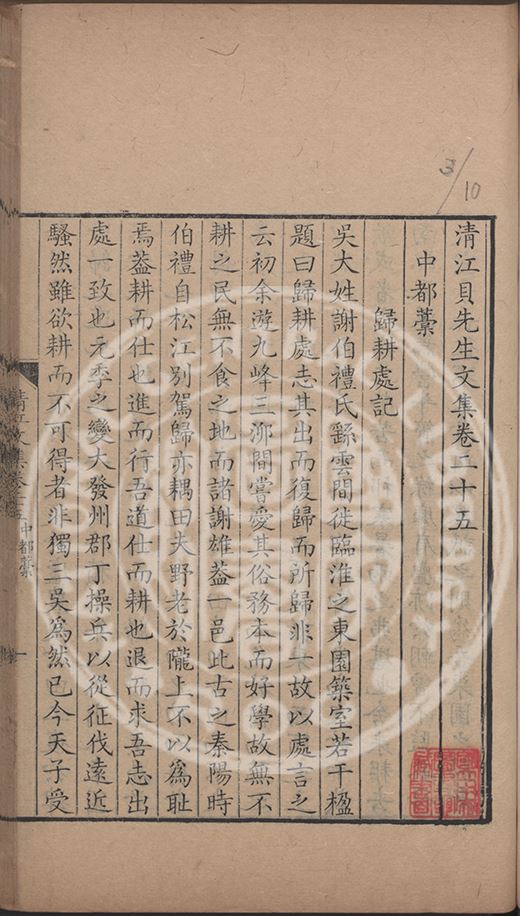 清江貝先生文集卷二十五
中都藁
歸耕處記
吳大姓謝伯禮氏繇雲間徙臨淮之東園築室若干楹
題曰歸耕處志其出而復歸而所歸非一故以處言之
云初余遊九峰三泖間嘗愛其俗務本而好學故無不
耕之民無不食之地而諸謝雄葢一邑此古之秦陽時
伯禮自松江別駕歸亦耦田夫野老於隴上不以為恥
焉葢耕而仕也進而行吾道仕而耕也退而求吾志出
處一致也元季之變大發州郡丁操兵以從征伐遠近
騷然雖欲耕而不可得者非獨三吳爲然已今天子受
清江文集卷二十五中都藁
一
3/10
1